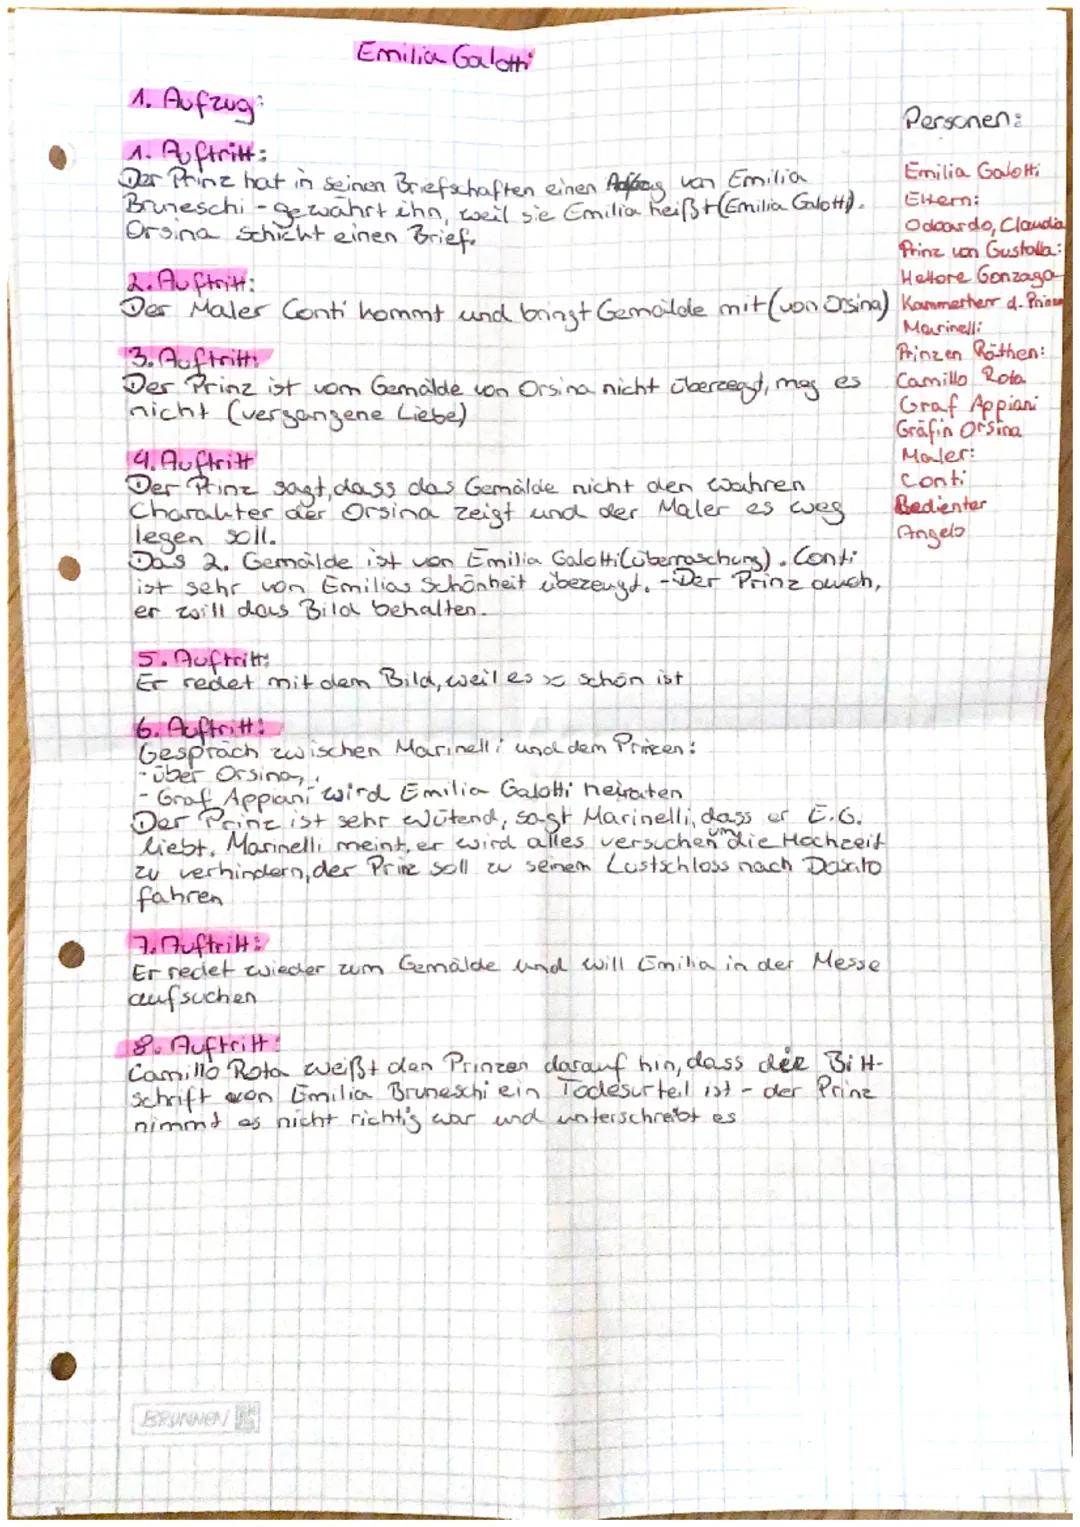 Emilia Galotti
1. Aufzug:
1. Auftritt:
Der Prinz hat in seinen Briefschaften einen von Emilia
Bruneschi - gewährt ihn, weil sie Emilia heißt (Emilia Galotti).
Orsina schickt einen Brief.
2. Auftritt:
Der Maler Conti kommt und bringt Gemälde mit (von Orsina)
3. Auftritt:
Der Prinz ist vom Gemälde von Orsina nicht überzeugt, mag es
nicht (vergangene Liebe)
4. Auftritt
Der Prinz sagt, dass das Gemälde nicht den wahren
Charakter der Orsina zeigt und der Maler es weg
legen soll.
Das 2. Gemälde ist von Emilia Galotti (Überraschung). Conti
ist sehr von Emilias Schönheit übezeugt. - Der Prinz auch,
er will das Bild behalten.
5. Auftritt:
Er redet mit dem Bild, weil es so schön ist
6. Auftritt:
Gespräch zwischen Marinelli und dem Prinzen:
- über Orsina,
- Graf Appiani wird Emilia Galotti heiraten
Der Prinz ist sehr wütend, sagt Marinelli, dass er E.G.
liebt. Marinelli meint, er wird alles versuchen um die Hochzeit
zu verhindern, der Prinz soll zu seinem Lustschloss nach Dosalo
fahren
7. Auftritt:
Er redet wieder zum Gemälde und will Emilia in der Messe
aufsuchen
8. Auftritt:
Camillo Rota weißt den Prinzen darauf hin, dass der Bitt-
schrift von Emilia Bruneschi ein Todesurteil ist - der Prinz
nimmt es nicht richtig war und unterschreibt es
Personen:
Emilia Galotti
Eltern:
Odoardo, Claudia
Prinz von Gustalla:
Hettore Gonzaga
Kammerherr d. Prinzen
Marinelli:
Prinzen Räthen:
Camillo Rota
Graf Appiani
Gräfin Orsina
Maler:
Conti
Bedienter
Angelo
BRUNNEN